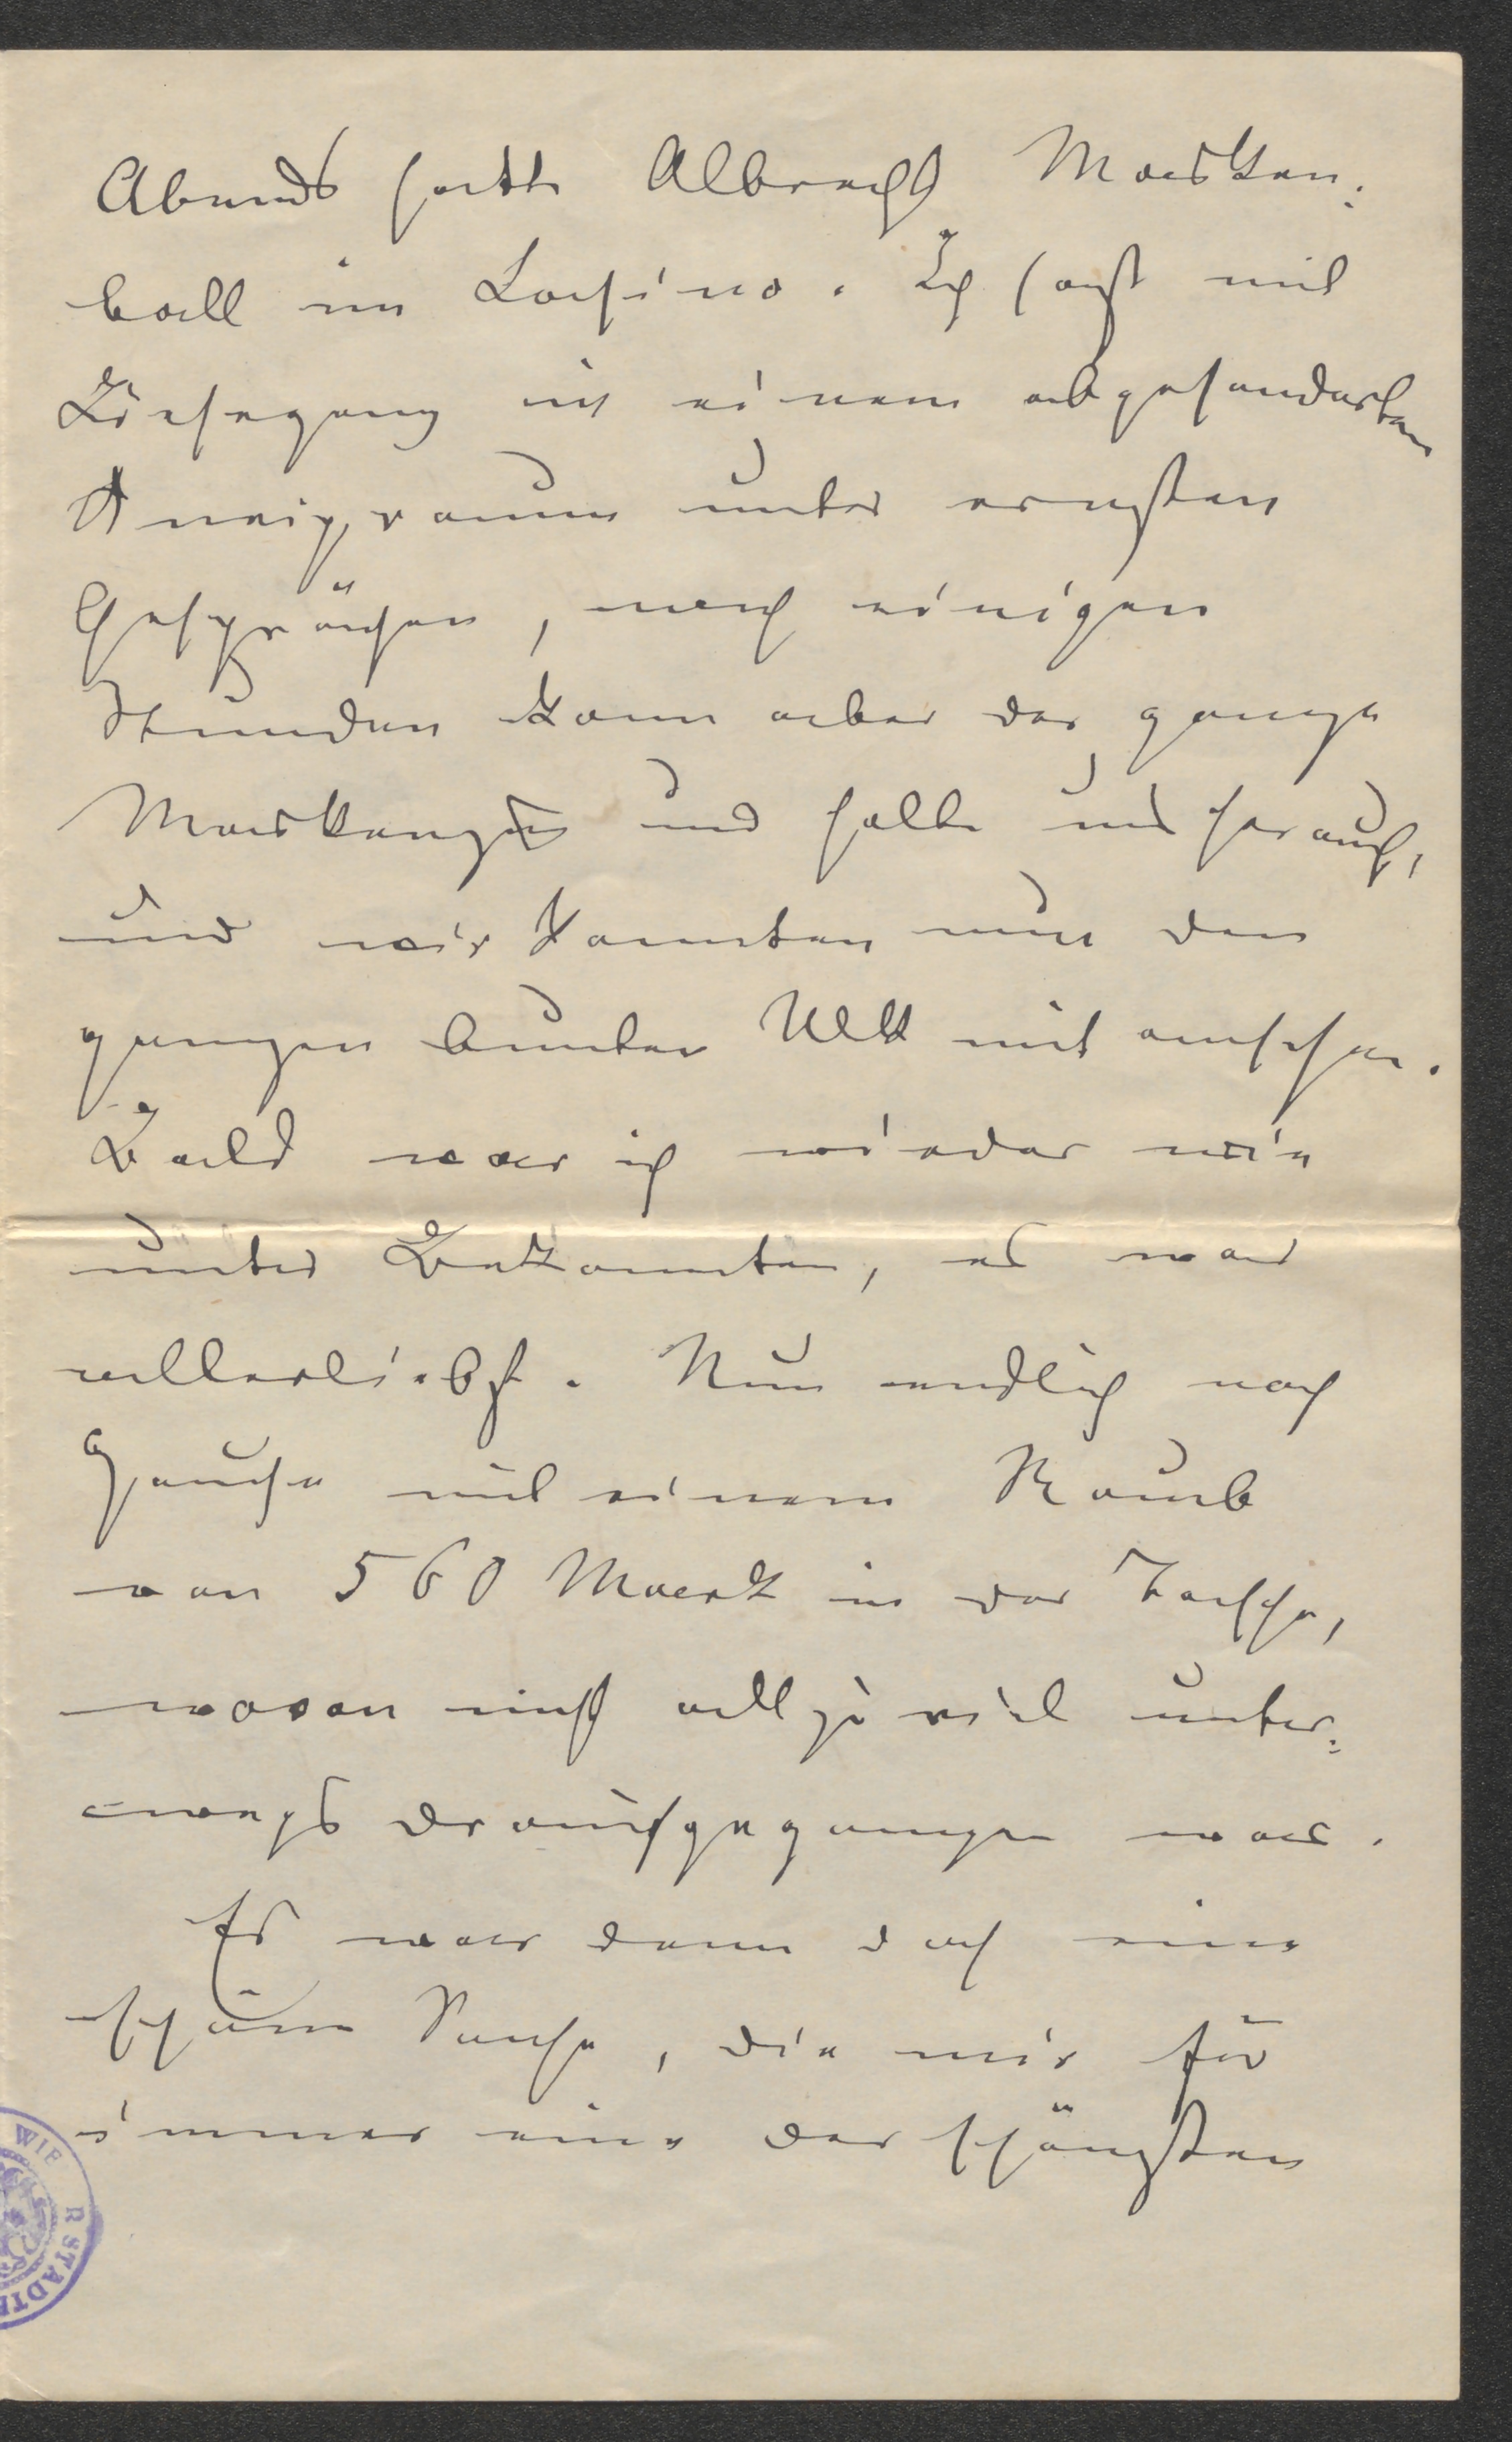 Abends hatte Albrecht Masken-
ball im Casino. Ich saß mit
Liesegang in einem abgesonderten
Kneipraum unter ernsten
Gesprächen, nach einigen
Stunden kam aber der ganze
Maskenzug und holte uns heraus,
und wir konnten nun den
ganzen bunten Ulk mit ansehen.
Bald war ich wieder wie
unter Bekannten, es war
allerliebst. Nun endlich nach
Hause mit einem Raub
von 560 Mark in der Tasche,
wovon nicht allzu viel unter-
wegs draufgegangen war.
Es war dann doch eine
schöne Reise, die mir für
immer eine der schönsten
WIE R STADT